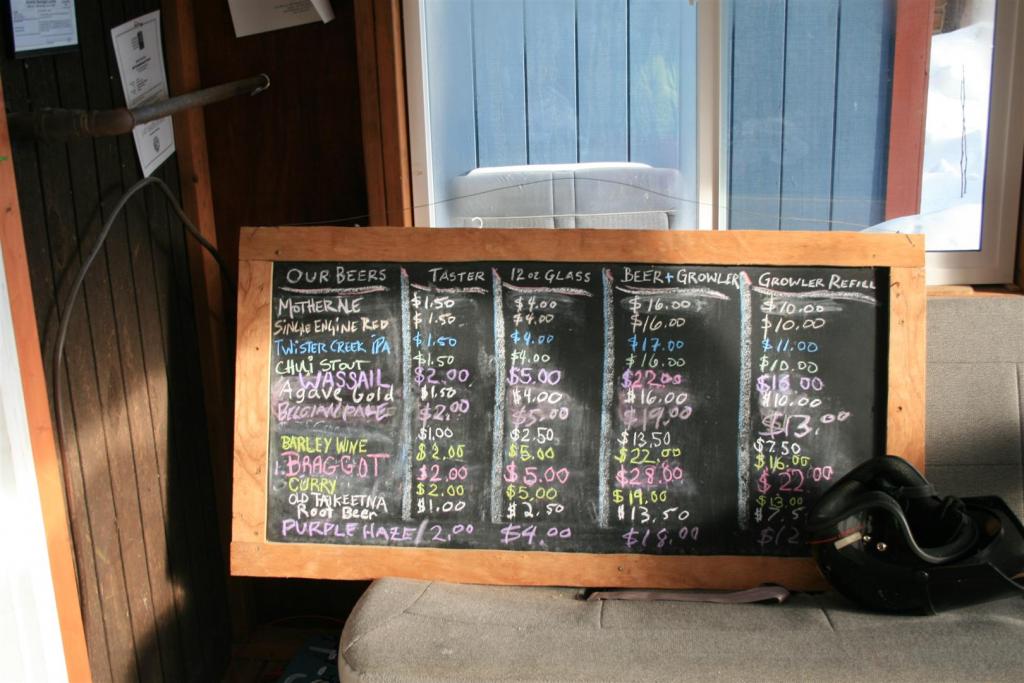 OUR BEERS TASTER 12 oz GLASS BEER + GROWLER GROWLER REFILL
MOTHERALE $1.50 $4.00 $16.00 $10.00
SINGLE ENGINE RED $1.50 $4.00 $16.00 $10.00
TWISTER CREEK IPA $1.50 $4.00 $17.00 $11.00
CHULI STOUT $1.50 $4.00 $16.00 $10.00
WASSAIL $2.00 $5.00 $22.00 $16.00
Agave Gold $1.50 $4.00 $16.00 $10.00
BELGIAN PALE $2.00 $5.00 $19.00 $13.00
$1.00 $2.50 $13.50 $7.50
BARLEY WINE $2.00 $5.00 $22.00 $16.00
BRAGGOT $2.00 $5.00 $28.00 $22.00
CURRY $2.00 $5.00 $19.00 $13.00
OLD TALKEETNA
Root Beer $1.00 $2.50 $13.50 $7.5
PURPLE HAZE / 2.00 $4.00 $18.00 $12